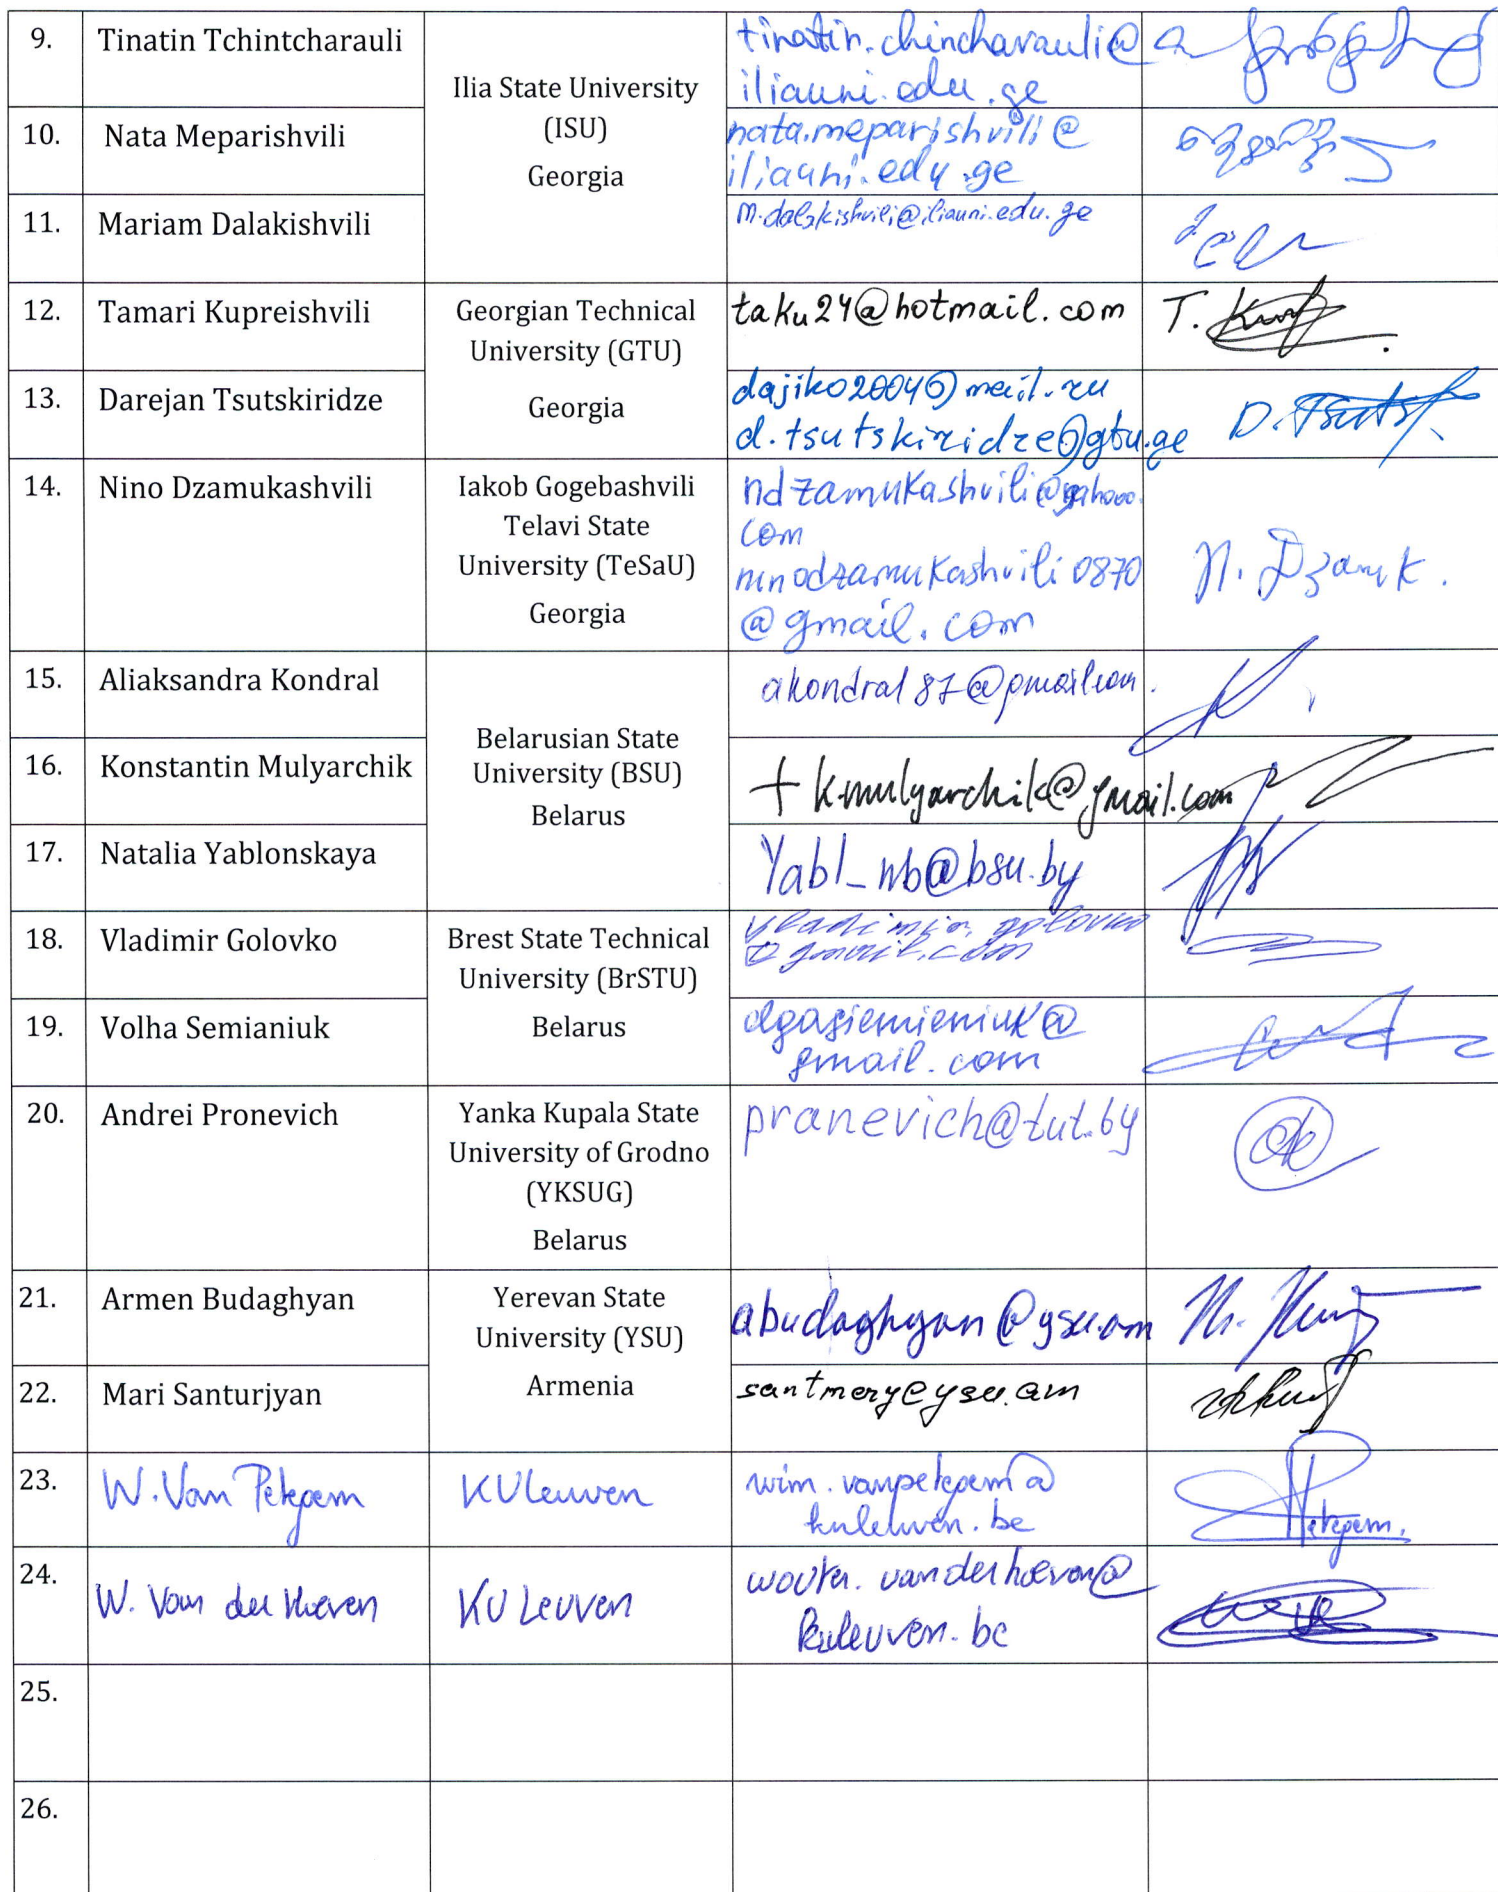 9. Tinatin Tchintcharauli
Ilia State University
(ISU)
Georgia
tinatin.chincharauli@
iliauni.edu.ge
10. Nata Meparishvili
nata.meparishvili@
iliauni.edu.ge
11. Mariam Dalakishvili
m.dalakishvili@iliauni.edu.ge
12. Tamari Kupreishvili
Georgian Technical
University (GTU)
Georgia
taku24@hotmail.com
T.
13. Darejan Tsutskiridze
dajiko2004@mail.ru
d.tsutskiridze@gtu.ge
D. Tsuts
14. Nino Dzamukashvili
Iakob Gogebashvili
Telavi State
University (TeSaU)
Georgia
ndzamukashvili@yahooo.
com
ninodzamukashvili0870
@gmail.com
N. Dzamk.
15. Aliaksandra Kondral
Belarusian State
University (BSU)
Belarus
akondral87@gmail.com
16. Konstantin Mulyarchik
+ k.mulyarchik@gmail.com
17. Natalia Yablonskaya
Yabl_nb@bsu.by
18. Vladimir Golovko
Brest State Technical
University (BrSTU)
Belarus
vladimir.golovko
@gmail.com
19. Volha Semianiuk
olgasiemieniuk@
gmail.com
20. Andrei Pronevich
Yanka Kupala State
University of Grodno
(YKSUG)
Belarus
pranevich@tut.by
21. Armen Budaghyan
Yerevan State
University (YSU)
Armenia
abudaghyan@ysu.am
22. Mari Santurjyan
santmery@ysu.am
23. W. Van Petegem
KULeuven
wim.vanpetegem@
kuleuven.be
Petegem.
24. W. Van der Hoeven
KU Leuven
wouter.vanderhoeven@
kuleuven.be
25.
26.